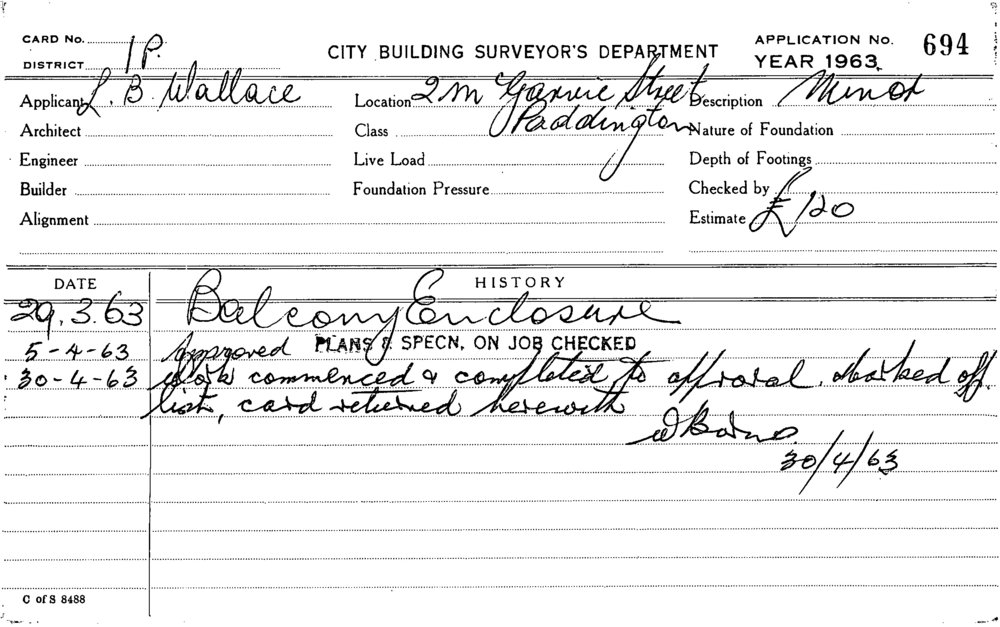 CARD No.
DISTRICT 1P.
CITY BUILDING SURVEYOR'S DEPARTMENT
APPLICATION No. 694
YEAR 1963.
Applicant L. B. Wallace
Location 2 McGarvie Street
Paddington
Description Minor
Architect
Class
Nature of Foundation
Engineer
Live Load
Depth of Footings
Builder
Foundation Pressure
Checked by
Alignment
Estimate £120
DATE
HISTORY
29.3.63 Balcony Enclosure
5-4-63 Approved PLANS & SPECN, ON JOB CHECKED
30-4-63 Work commenced & completed to approval. Marked off
list, card returned herewith
30/4/63
C of S 8488